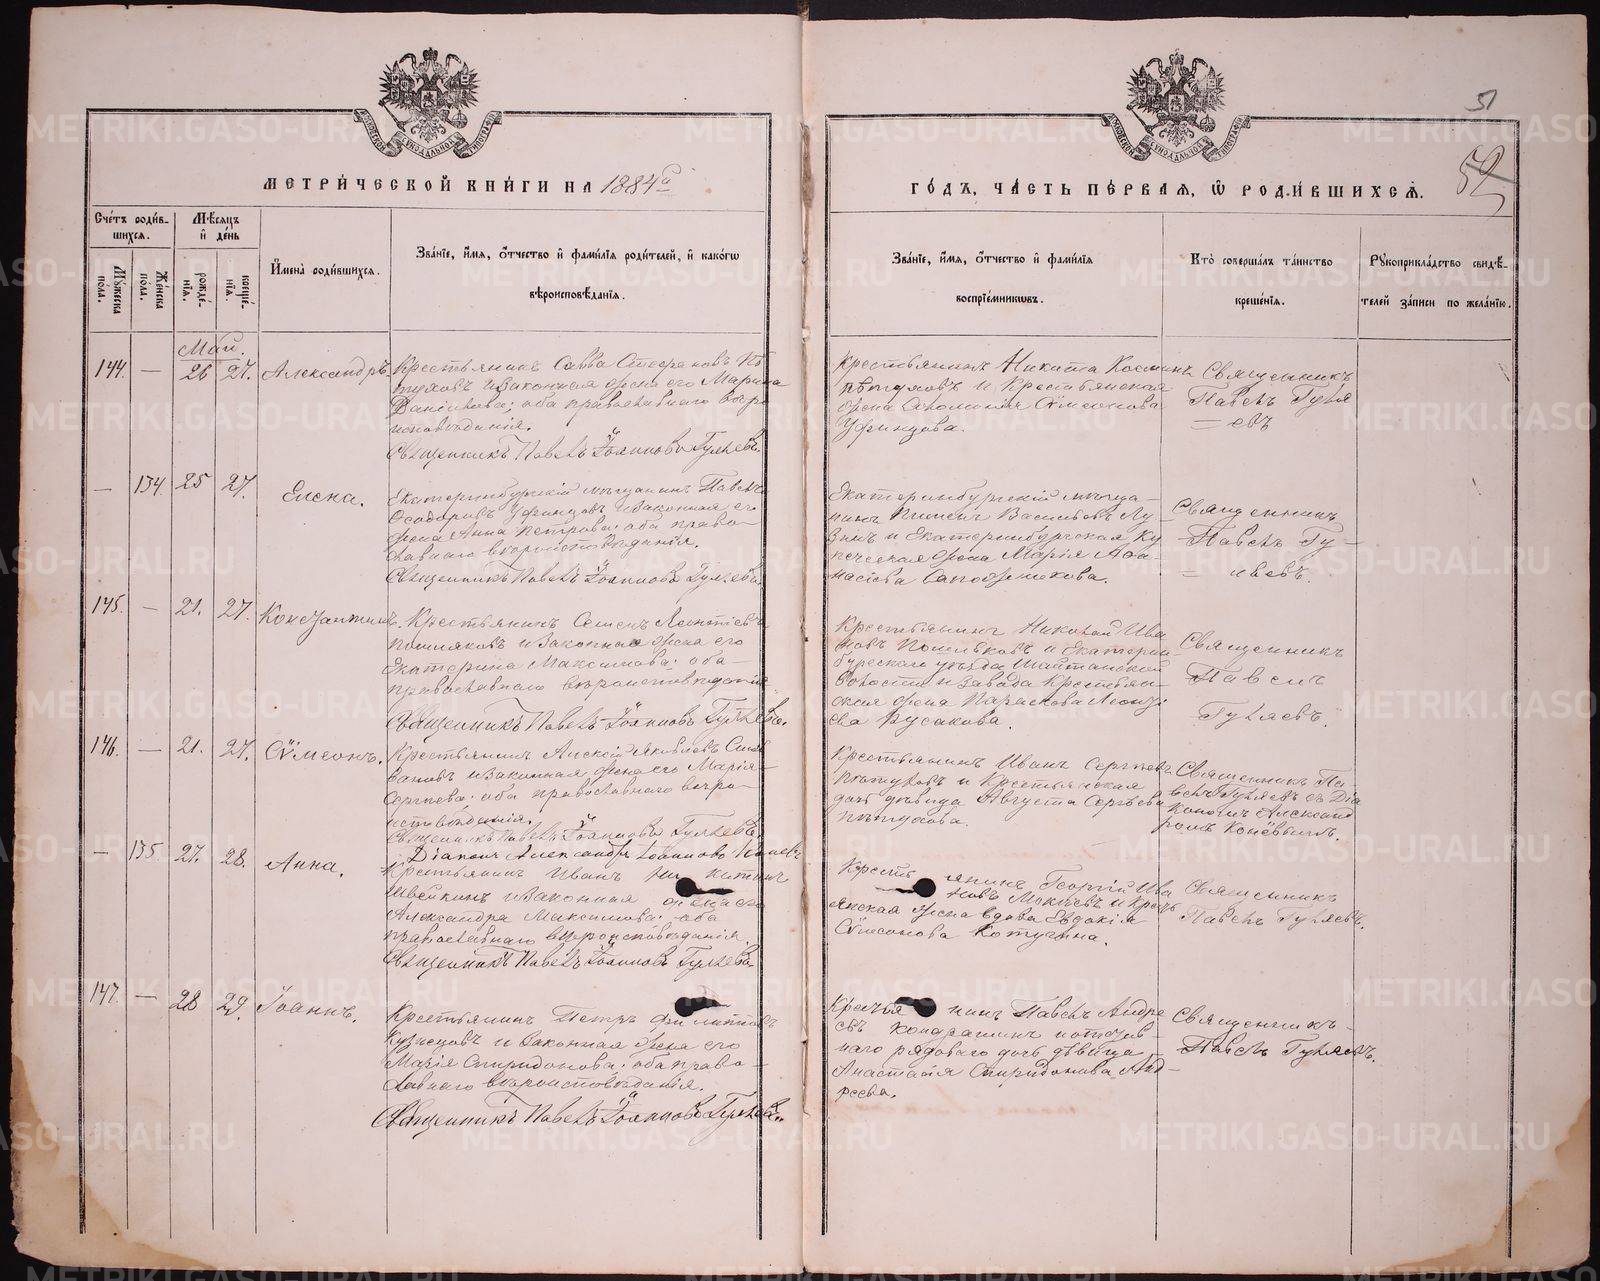 51
52
МОСКОВСКОЙ СѴНОДАЛЬНОЙ ТИПОГРАФІИ
МОСКОВСКОЙ СѴНОДАЛЬНОЙ ТИПОГРАФІИ
МЕТРИ́ЧЕСКОЙ КНИ́ГИ НА 1884й
ГО́ДЪ, ЧА́СТЬ ПЕ́РВАЯ, Ѽ РОДИ́ВШИХСЯ.
Сче́тъ роди́в-
шихся.
Мꙋ́жеска
пола.
Же́нска
пола.
Мѣ́сяцъ
и҆ де́нь
рожде́-
нїя.
креще́-
нїя.
И҆мена̀ роди́вшихся.
Зва́нїе, и҆́мя, ѻ҆́тчество и҆ фами́лїя роди́телей, и҆ како́гѡ
вѣроисповѣ́данїя.
Зва́нїе, и҆́мя, ѻ҆́тчество и҆ фами́лїя
воспрїе́мникѡвъ.
Кто̀ соверша́лъ та́инство
креще́нїя.
Рꙋкоприкла́дство свидѣ́-
телей за́писи по жела́нїю.
Май.
144. — 26 27. Александръ.
Крестьянинъ Савва Стефановъ Пѣ
туховъ и законная жена его Марина
Даніилова; оба православнаго вѣро
исповѣданія.
Священникъ Павелъ Іоанновъ Гуляевъ.
Крестьянинъ Никита Космин
Пѣтуховъ и Крестьянская
жена Соломонія Сѵмеонова
Уфинцова.
Священникъ
Павелъ Гуля
= евъ
— 134. 25 27. Елена.
Екатеринбургскій мѣщанинъ Павелъ
Ѳеодоровъ Уфинцовъ и законная его
жена Анна Петрова; оба право-
славнаго вѣроисповѣданія.
Священникъ Павелъ Іоанновъ Гуляевъ.
Екатеринбургскій мѣща-
нинъ Пименъ Васильевъ Лу
зинъ и Екатеринбургская Ку
печеская жена Марія Аѳа
насіева Сапожникова.
Священникъ
Павелъ Гу-
= ляевъ.
145. — 21. 27. Константинъ.
Крестьянинъ Семенъ Леонтіевъ
и законная жена его
Екатерина Максимова; оба-
православнаго вѣроисповѣданія
Священникъ Павелъ Іоанновъ Гуляевъ.
Крестьянинъ Николай Ива
новъ и Екатерин
бургскаго уѣзда Шайтанской
волости и завода Крестьян-
ская жена Параскова Леонт
ева Русакова.
Священникъ
Павелъ
Гуляевъ.
146. — 21. 27. Сѵмеонъ.
Крестьянинъ Алексій Яковлевъ
и законная жена его Марія
Сергѣева; оба православнаго вѣро-
исповѣданія.
Священникъ Павелъ Іоанновъ Гуляевъ.
Діаконъ Александръ Іоанновъ Коневъ
Крестьянинъ Иванъ Сергѣевъ
Пѣтуховъ и Крестьянская
дочь дѣвица Августа Сергѣева
Пѣтухова.
Священникъ Па
велъ Гуляевъ съ Діа
кономъ Александ
ромъ Конёвымъ.
— 135. 27. 28. Анна.
Крестьянинъ Иванъ Никитинъ
Швейкинъ и законная жена его
Александра Максимова; оба
православнаго вѣроисповѣданія.
Священникъ Павелъ Іоанновъ Гуляевъ
Крестьянинъ Георгій Ива
новъ Мокѣевъ и Крест
янская жена вдова Евдокія
Сѵмеонова Котугина.
Священникъ
Павелъ Гуляевъ.
147. — 28 29. Іоаннъ.
Крестьянинъ Петръ Филиповъ
Кузнецовъ и законная жена его
Марія Спиридонова; оба право-
славнаго вѣроисповѣданія.
Священникъ Павелъ Іоанновъ Гуляевъ.
Крестьянинъ Павелъ Андре
евъ Кондрашинъ и отстав-
наго рядоваго дочь дѣвица
Анастасія Спиридонова Анд-
реева.
Священникъ
Павелъ Гуляевъ.
METRIKI.GASO-URAL.RU